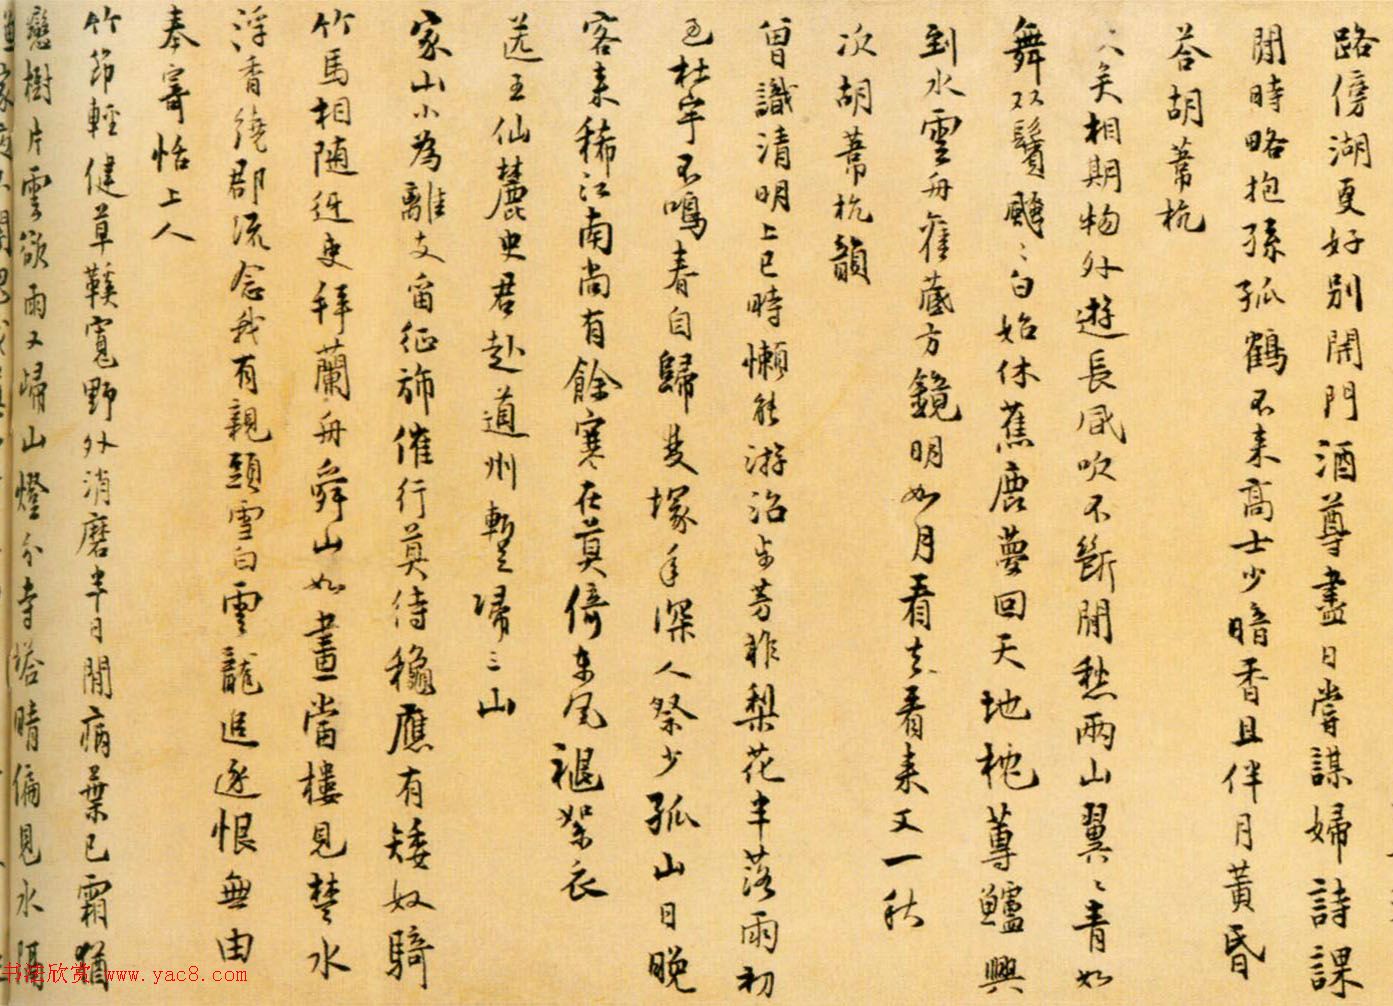 路傍湖更好別開門酒尊盡日嘗謀婦詩課
閒時略抱孫孤鶴不来高士少暗香且伴月黄昏
荅胡葦杭
矣相期物外遊長風吹不斷閒愁兩山翼〻青如
舞双鬢飈〻白始休蕉鹿夢回天地枕蓴鱸興
到水雲舟舊藏方鏡明如月看去看来又一秋
次胡葦杭韻
曾識清明上巳時懶能游冶步芳菲梨花半落雨初
過杜宇不鳴春自歸雙塚年深人祭少孤山日晚
客来稀江南尚有餘寒在莫倚東風褪絮衣
送王仙麓史君赴道州暫歸三山
家山小為離支留征斾催行莫待穐應有矮奴騎
竹馬相随迓吏拜蘭舟舜山如畫當樓見楚水
浮香繞郡流念我有親頭雪白雲龍追逐恨無由
奉寄恬上人
竹節輕健草鞵寬野外消磨半日閒病葉已霜猶
戀樹片雲欲雨又歸山燈分寺塔晴偏見水隔
书法欣赏 www.yac8.com